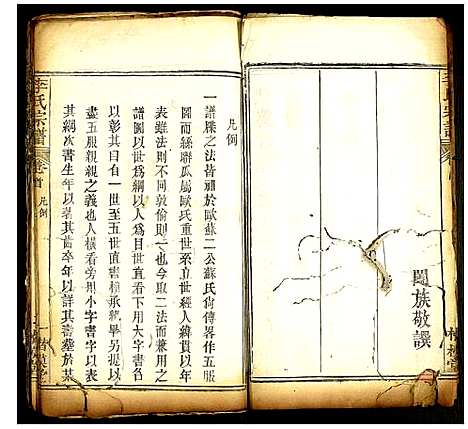 闔族敬譔
凡例
一譜牒之法皆祖於歐蘇二公蘇氏尚傳畧作五服
圖而絲聯瓜屬歐氏重世系立世經人緯貫以年
表雖法則不同敦倫則一也今取二法而兼用之
譜圖以世爲綱以人爲目直看下用大字書名
以彰其目自一世至五世直書極承統畢另提以
盡五服親親之義也人橫看旁用小字書字以
其綱次書生年以著其齒卒年以詳其壽塟於某
李氏宗譜
卷首
凡例